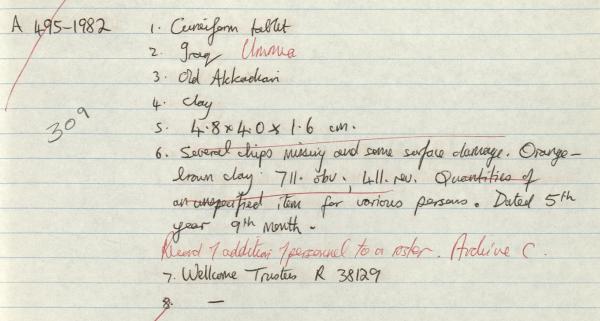 A 495-1982 1. Cuneiform tablet
2. Iraq Umma
3. Old Akkadian
4. clay
309
5. 4.8 x 4.0 x 1.6 cm.
6. Several chips missing and some surface damage. Orange-
brown clay. 7ll. obv., 4ll. rev. Quantities of
an unspecified item for various persons. Dated 5th
year 9th month.
Record of addition of personnel to a roster. Archive C.
7. Wellcome Trustees R 38129
8. —